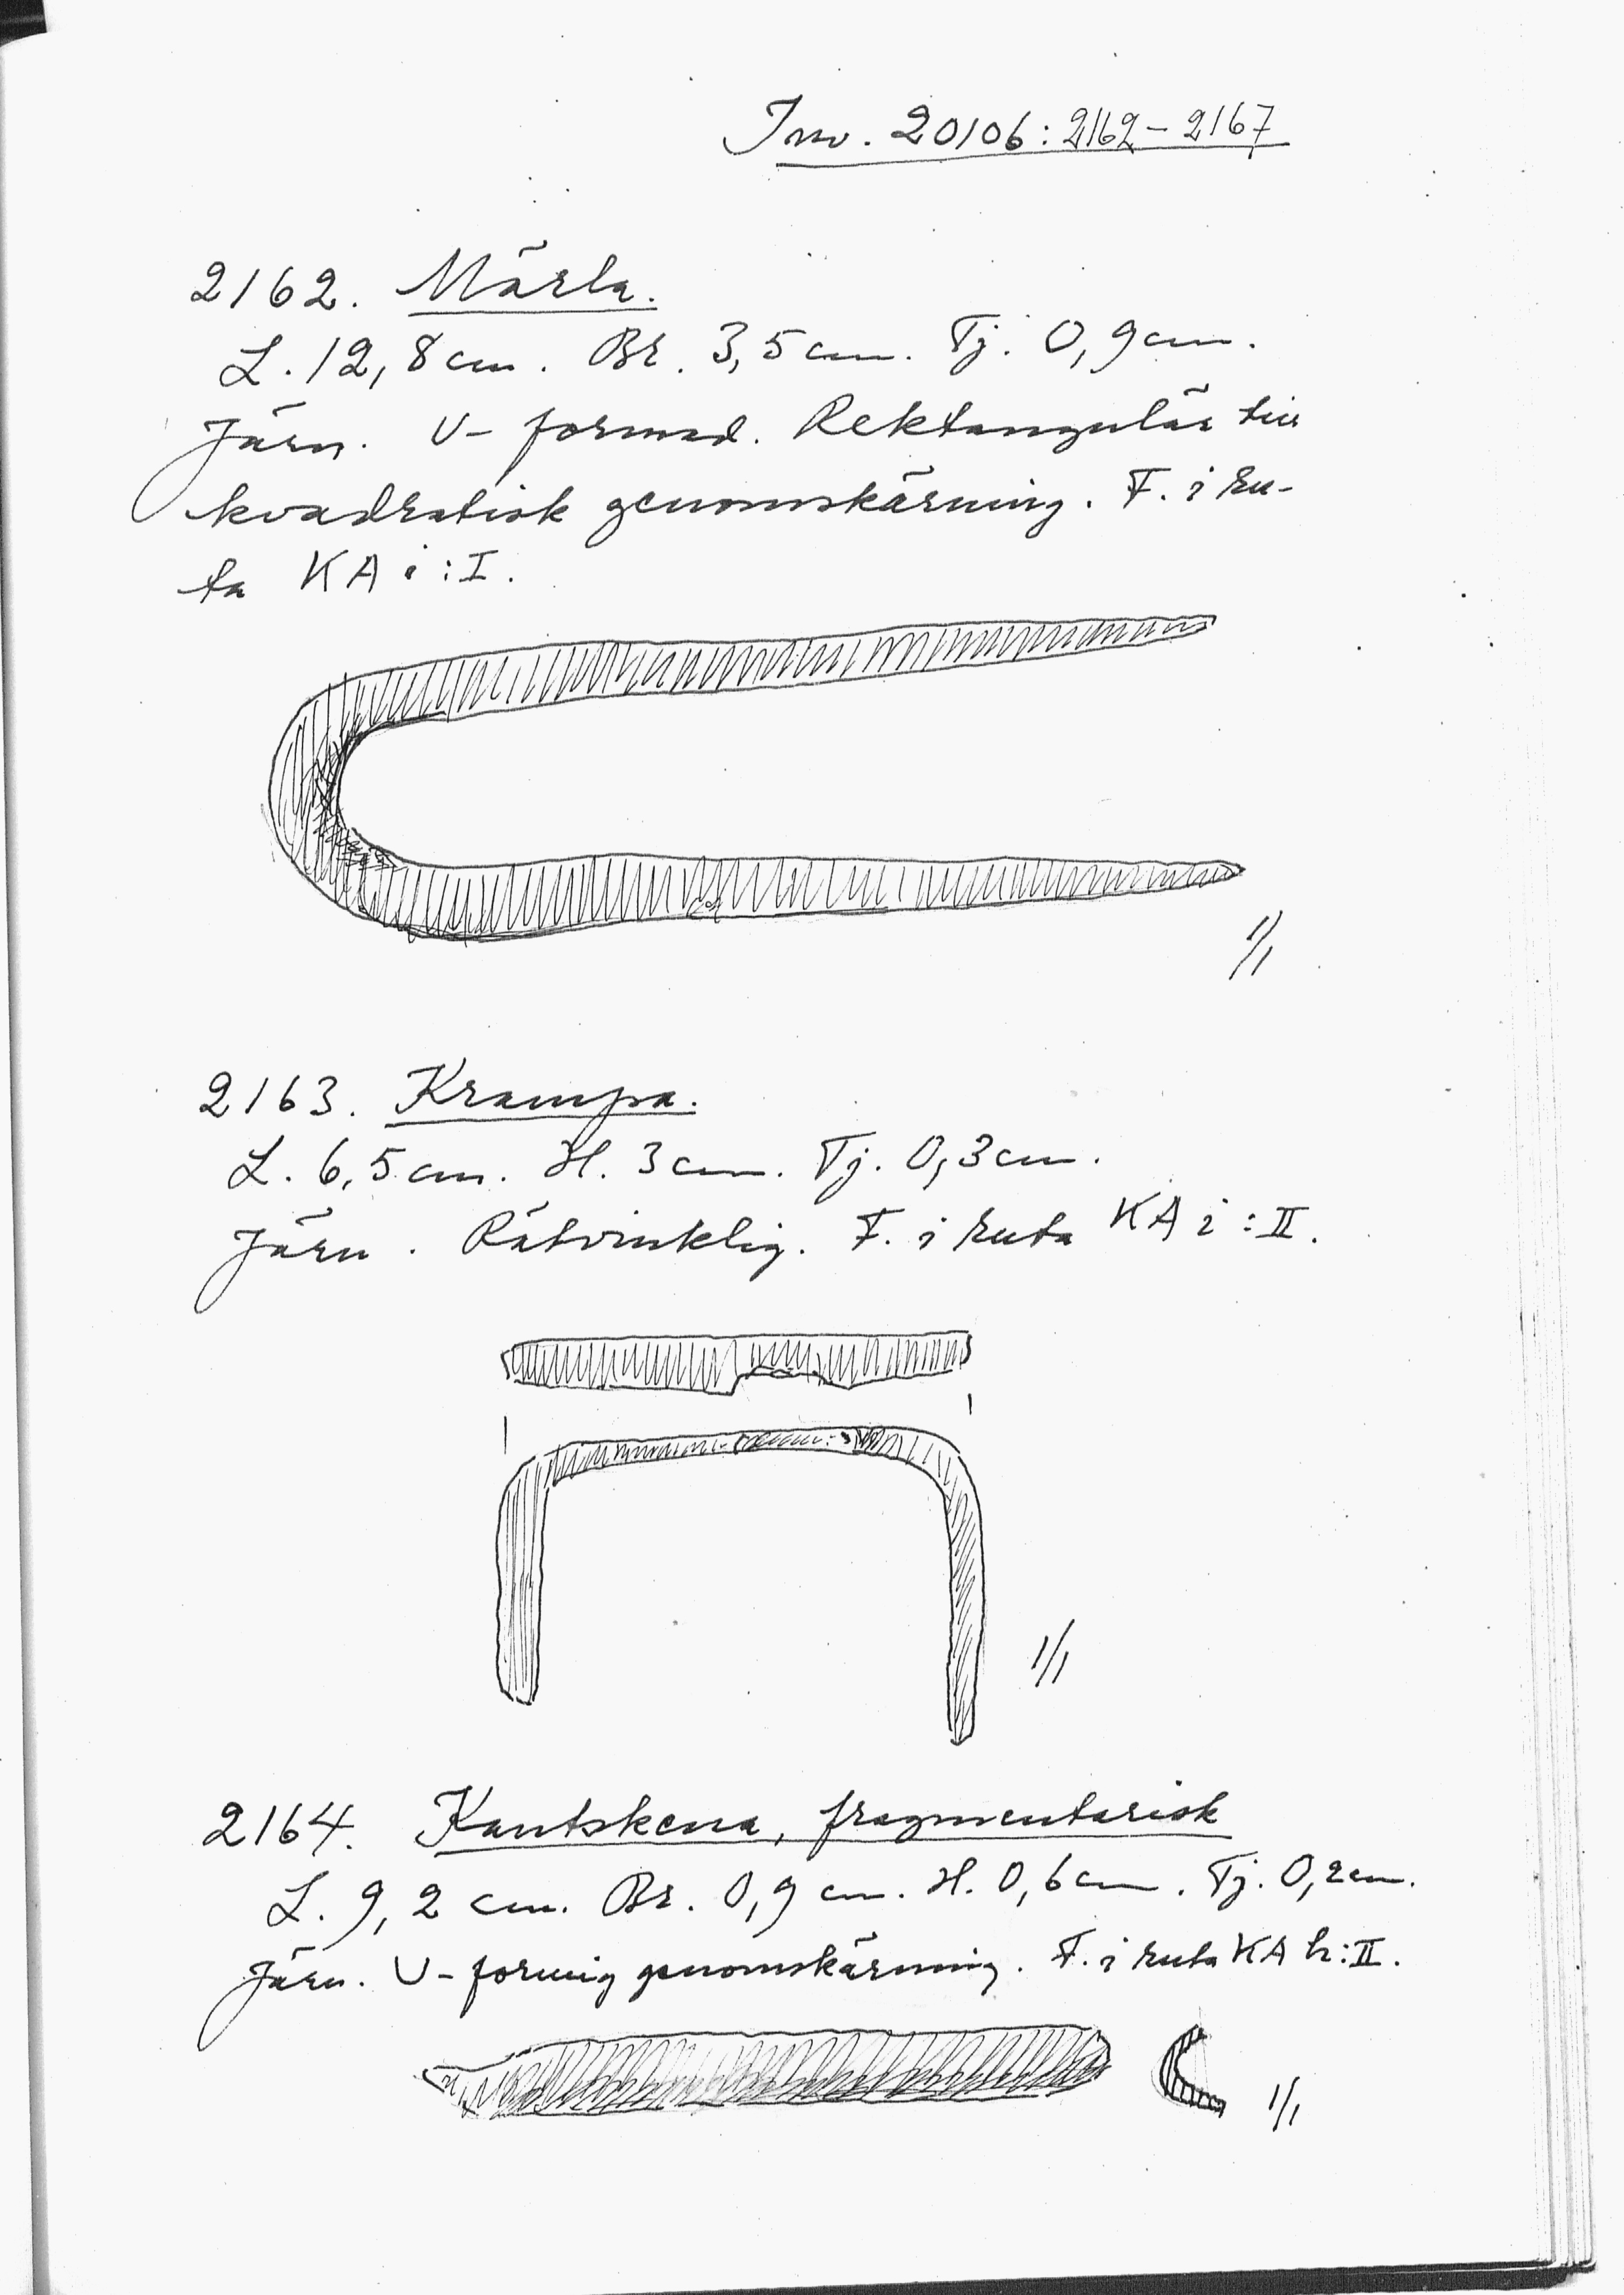 Inv. 20106:2162-2167
2162. Märla.
L. 12,8 cm. Br. 3,5 cm. Tj. 0,9 cm.
Järn. U-formad. Rektangulär till
kvadratisk genomskärning. F. i ru-
ta KA i:I.
1/1
2163. Krampa.
L. 6,5 cm. H. 3 cm. Tj. 0,3 cm.
Järn. Rätvinklig. F. i ruta KA i:II.
1/1
2164. Kantskena, fragmentarisk
L. 9,2 cm. Br. 0,9 cm. H. 0,6 cm. Tj. 0,2 cm.
Järn. U-formig genomskärning. F. i ruta KA h:II.
1/1